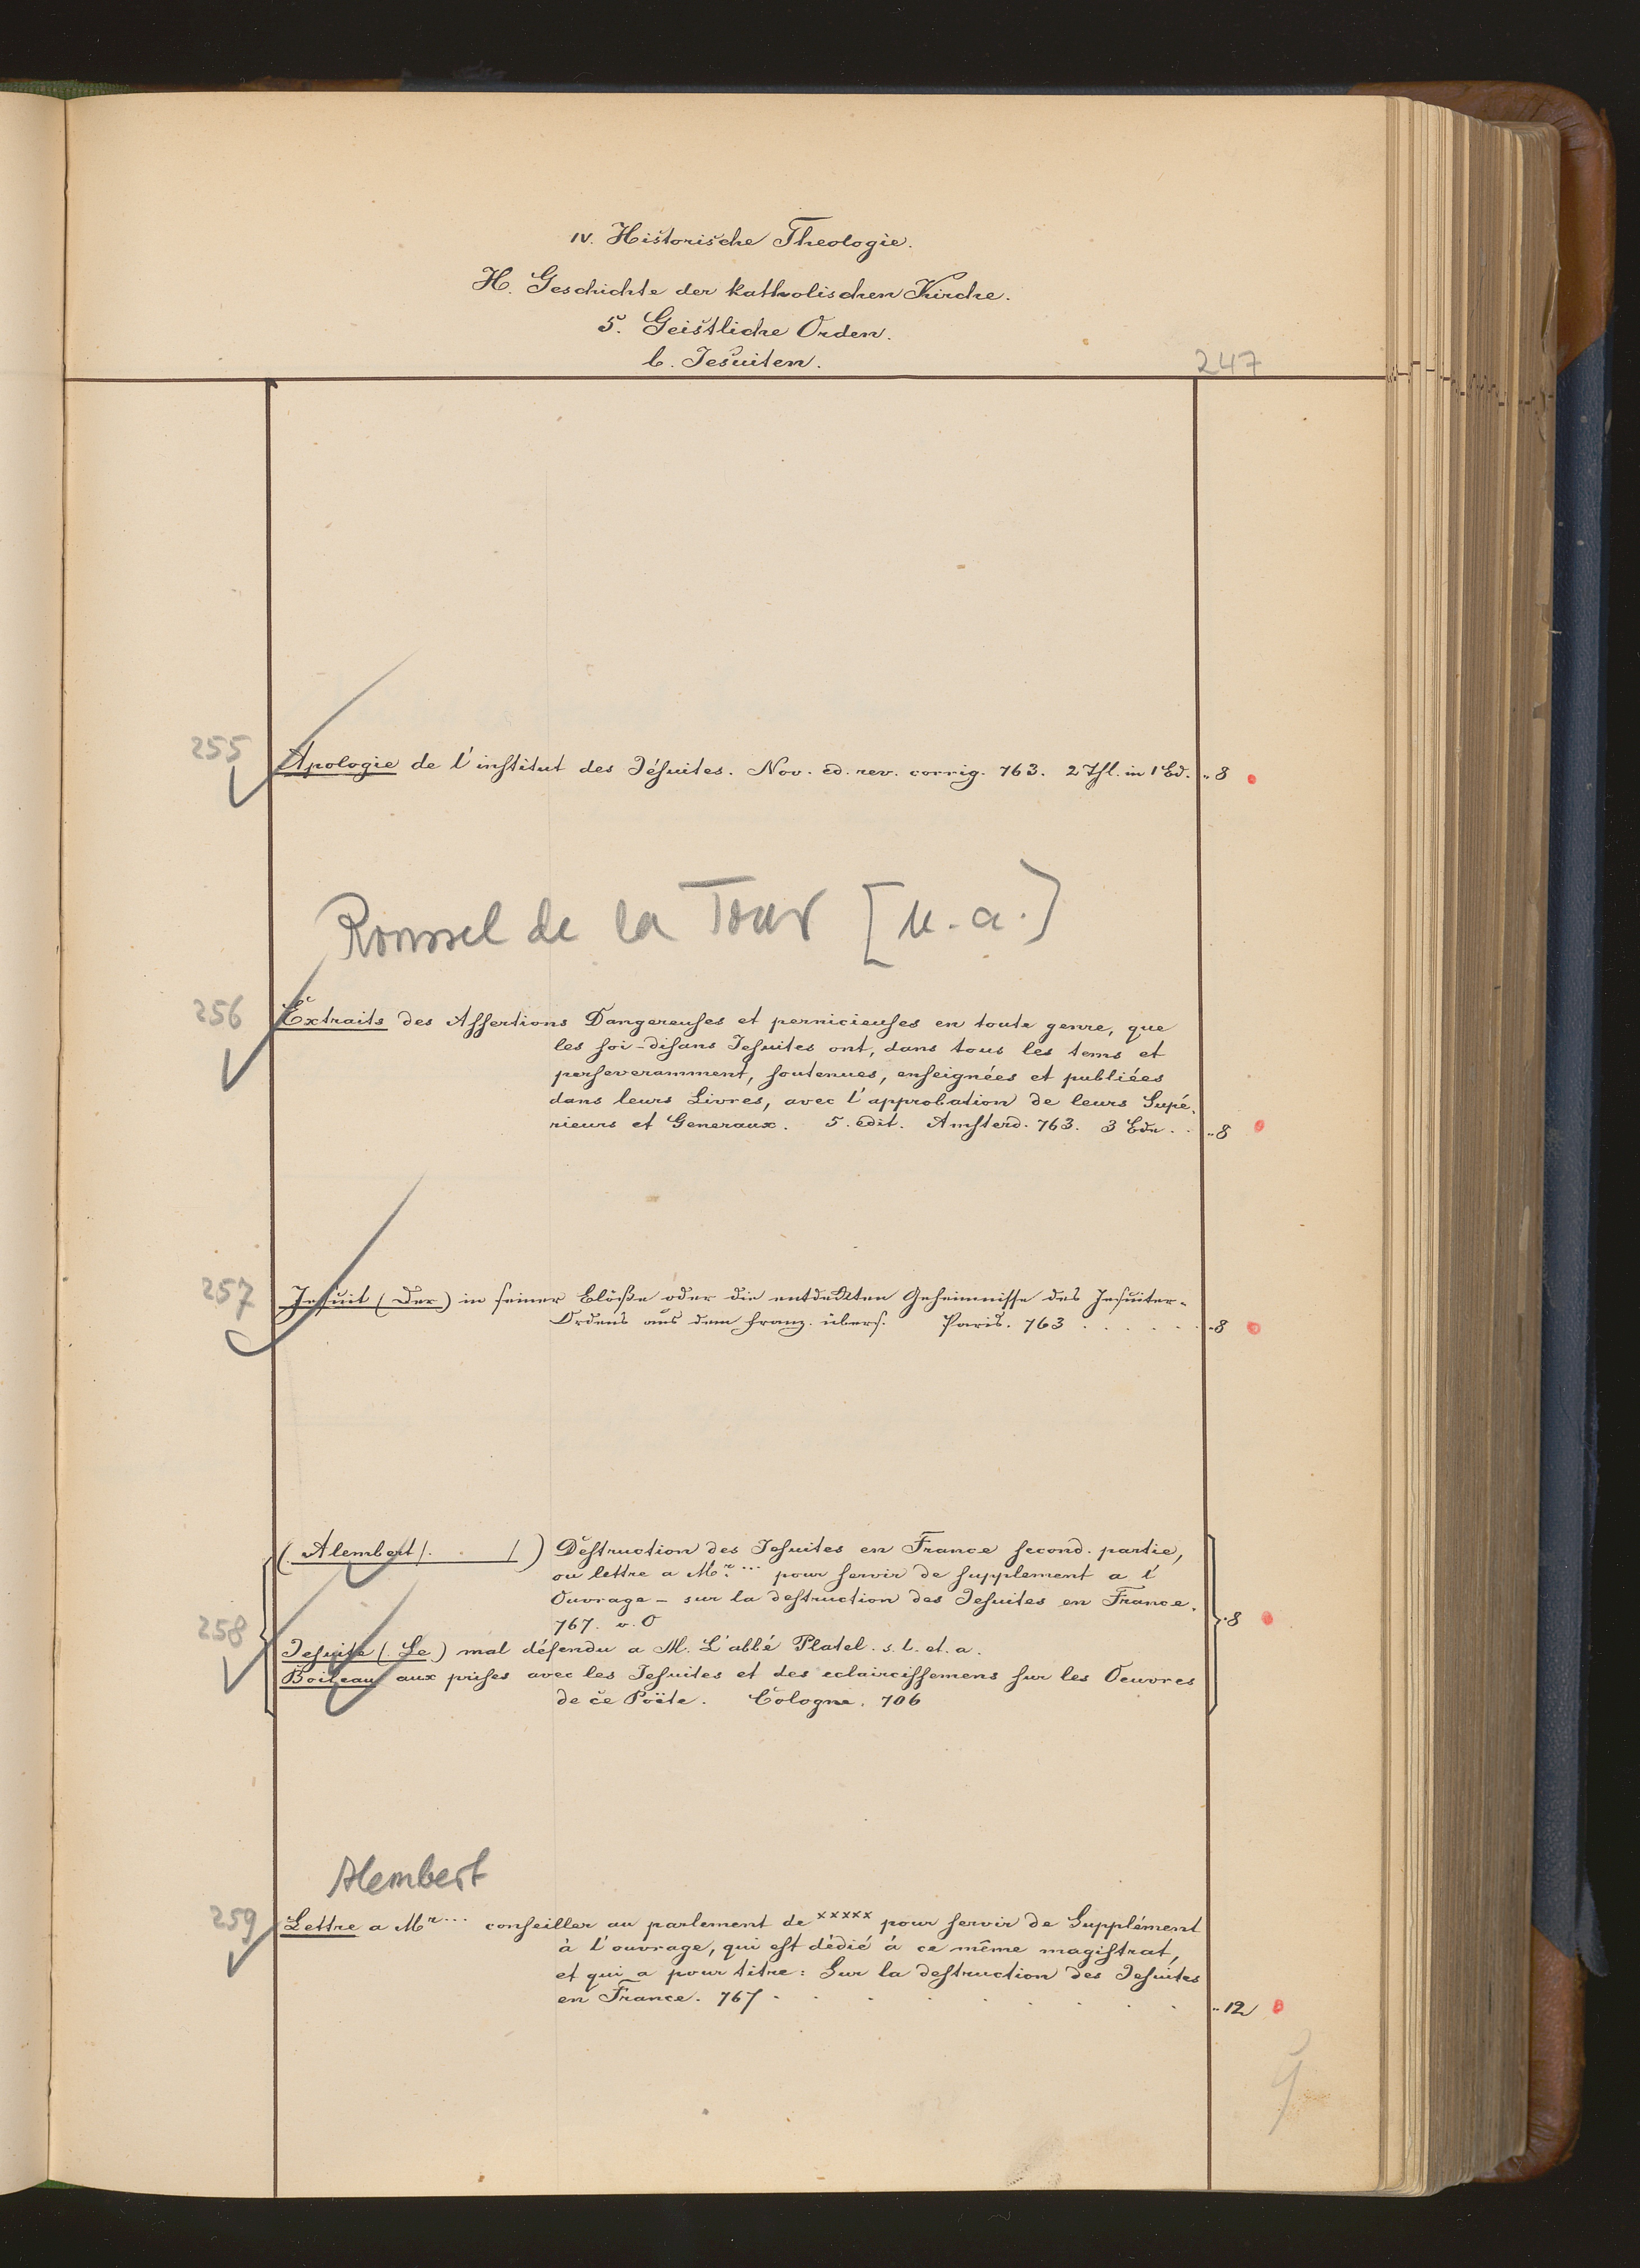 IV. Historische Theologie.
H. Geschichte der katholischen Kirche.
5. Geistliche Orden.
b. Jesuiten.
247
255 Apologie de l'institut des Jésuites. Nov. ed. rev. corrig. 763. 2 Thl. in 1 Bd. .. 8
Roussel de la Tour [u. a.]
256 Extraits des Assertions Dangereuses et pernicieuses en toute genre, que
les soi-disans Jesuites ont, dans tous les tems et
perseveramment, soutenues, enseignées et publiées
dans leurs Livres, avec l'approbation de leurs Supé-
rieurs et Generaux. 5. edit. Amsterd. 763. 3 Bde. . .. 8
257 Jesuit (Der) in seiner Blöße oder die entdekten Geheimnisse des Jesuiter-
Ordens aus dem franz. übers. Paris. 763 . . . . . .. 8
(Alembert /. . /) Destruction des Jesuites en France second. partie,
ou lettre a Mr... pour servir de supplement a l'
Ouvrage - sur la destruction des Jesuites en France.
767. v. O
258 Jesuite (Le) mal défendu a M. L'abbé Platel. s. l. et. a. .. 8
Boileau aux prises avec les Jesuites et des eclaircissemens sur les Oeuvres
de ce Poëte. Cologne. 706
Alembert
259 Lettre a Mr... conseiller au parlement de xxxxx pour servir de Supplément
à l'ouvrage, qui est dédié à ce même magistrat,
et qui a pour titre: Sur la destruction des Jesuites
en France. 767 . . . . . . . .. 12